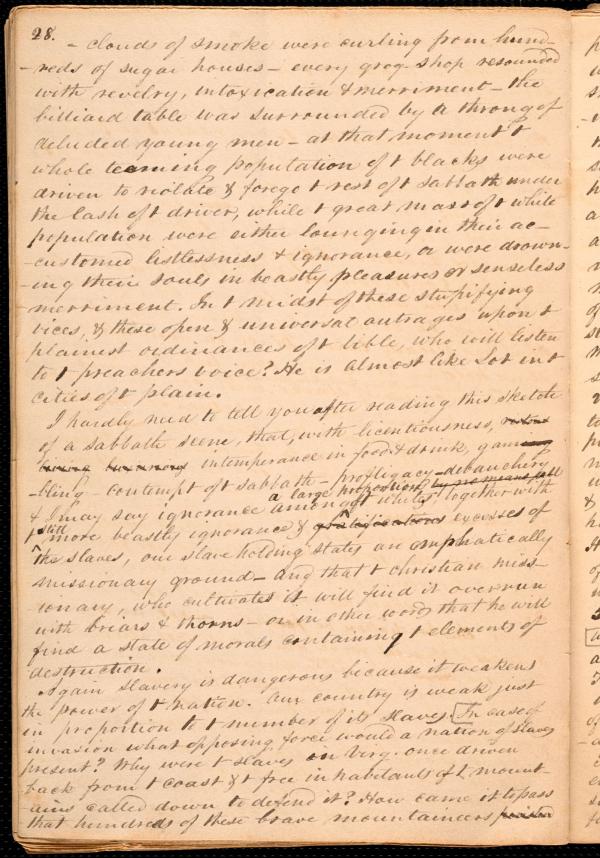 28.
- clouds of smoke were curling from hund-
-reds of sugar houses - every grog shop resounded
with revelry, intoxication & merriment - the
billiard table was surrounded by a throng of
deluded young men - at that moment t
whole teeming population of t blacks were
driven to violate & forego t rest of t Sabbath under
the lash of t driver, while t great mass of t white
population were either lounging in their ac-
-customed listlessness & ignorance, or were drown-
-ing their souls in beastly pleasures or senseless
merriment. In t midst of these stupifying
vices, & these open & universal outrages upon t
plainest ordinances of t bible, who will listen
to t preachers voice? He is almost like Lot in t
cities of t plain.
I hardly need to tell you after reading this sketch
of a Sabbath scene, that, with licentiousness,
intemperance in food & drink, gam
-bling - contempt of t sabbath - profligacy - debauchery
& I may say ignorance amongst a large proportion of t whites by no means together with
still more beastly ignorance & excesses of
the slaves, our slave holding states are emphatically
missionary ground - and that t christian miss-
ionary, who cultivates it will find it overrun
with briars & thorns - or in other words that he will
find a state of morals containing t elements of
destruction.
Again Slavery is dangerous because it weakens
the power of t nation. Our country is weak just
in proportion to t number of its slaves. In case of
invasion what opposing force would a nation of slaves
present? Why were t slaves in Virg. once driven
back from t coast & t free inhabitants of t mount-
-ains called down to defend it? How came it to pass
that hundreds of these brave mountaineers